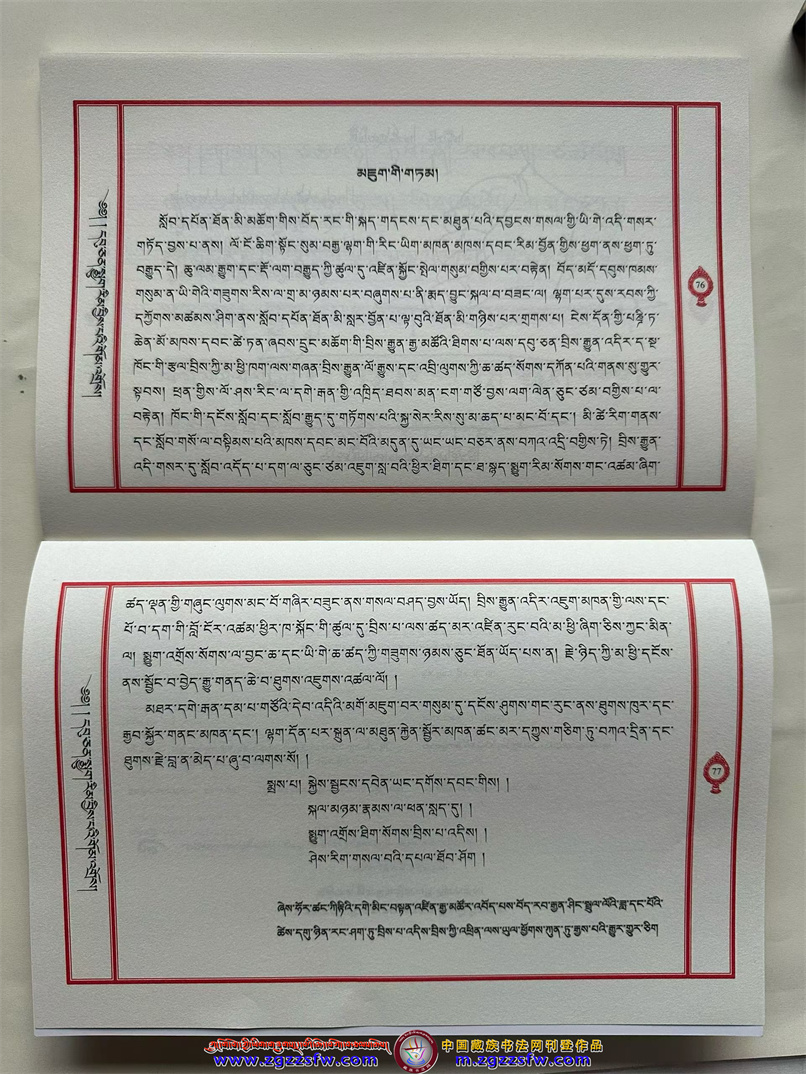 མཇུག་གི་གཏམ།
སློབ་དཔོན་ཐོན་མི་མཆོག་གིས་བོད་རང་གི་སྐད་གདངས་དང་མཐུན་པའི་དབྱངས་གསལ་གྱི་ཡི་གེ་འདི་གསར་
གཏོད་བྱས་པ་ནས། ལོ་ངོ་ཆིག་སྟོང་སུམ་བརྒྱ་ལྷག་གི་རིང་ཡིག་མཁན་མཁས་དབང་རིམ་བྱོན་གྱིས་ཕྱག་ནས་ཕྱག་ཏུ་
བརྒྱུད་དེ། ཆུ་ལམ་རྒྱུག་དང་རྡོ་ལག་བརྒྱུད་ཀྱི་ཚུལ་དུ་འཛིན་སྐྱོང་སྤེལ་གསུམ་བགྱིས་པར་བརྟེན། བོད་མདོ་དབུས་ཁམས་
གསུམ་ན་ཡི་གེའི་གཟུགས་རིས་ལ་གྲ་མ་ཉམས་པར་བཞུགས་པ་ནི་རྨད་བྱུང་སྐལ་བ་བཟང་ལ། ལྷག་པར་དུས་རབས་ཀྱི་
དཀྱོགས་མཚམས་ཤིག་ནས་སློབ་དཔོན་ཐོན་མི་སླར་བྱོན་པ་ལྟ་བུའི་ཐོན་མི་གཉིས་པར་གྲགས་པ། ངེས་དོན་གྱི་པཎྜི་ཏ་
ཆེན་མོ་ཁས་དབང་ཚེ་ཏན་ཞབས་དྲུང་མཆོག་གི་བྲིས་རྒྱུན་རྒྱ་མཚོའི་ཐིགས་པ་ལས་དབུ་ཅན་བྲིས་རྒྱུན་འདིར་ད་སྔ་
ཁོང་གི་རྩལ་བྲིས་ཀྱི་མ་ཕྱི་ཁག་ལས་གཞན་བྲིས་རྒྱུན་ལོ་རྒྱུས་དང་འབྲི་ལུགས་ཀྱི་ཆ་ཚད་སོགས་དཀོན་པའི་གནས་སུ་གྱུར་
སྟབས། ཕྲན་གྱིས་ལོ་ཤས་རིང་ལ་དགེ་རྒན་གྱི་འཁྲིད་ཐབས་མན་ངག་གཙོ་བྱས་ལག་ལེན་ཅུང་ཙམ་བགྱིས་པ་ལ་
བརྟེན། ཁོང་གི་དངོས་སློབ་དང་སློབ་རྒྱུད་དུ་གཏོགས་པའི་སྐྱ་སེར་རིས་སུ་མ་ཆད་པ་མང་པོ་དང་། མི་ཚེ་རིག་གནས་
དང་སློབ་གསོ་ལ་བསྟིམས་པའི་མཁས་དབང་མང་པོའི་མདུན་དུ་ཡང་ཡང་བཅར་ནས་བཀའ་འདྲི་བགྱིས་ཏེ། བྲིས་རྒྱུན་
འདི་གསར་དུ་སློབ་འདོད་པ་དག་ལ་ཅུང་ཙམ་འཇུག་སླ་བའི་ཕྱིར་ཐིག་དང་ཐ་སྙད་སྨྱུག་རིམ་སོགས་གང་འཚམ་ཞིག་
76
ཚད་ལྡན་གྱི་གཞུང་ལུགས་མང་པོ་གཞིར་བཟུང་ནས་གསལ་བཤད་བྱས་ཡོད། བྲིས་རྒྱུན་འདིར་འཇུག་མཁན་གྱི་ལས་དང་
པོ་བ་དག་གི་བློ་ངོར་འཚམ་ཕྱིར་ཁ་སྐོང་གི་ཚུལ་དུ་བྲིས་པ་ལས་ཚད་མར་འཛིན་རུང་བའི་མ་ཕྱི་ཞིག་ཅིས་ཀྱང་མིན་
ལ། སྨྱུག་འགྲོས་སོགས་ལ་བྱང་ཆ་དང་ཡི་གེ་ཆ་ཚད་ཀྱི་གཟུགས་ཉམས་ཅུང་ཐོན་ཡོད་པས་ན། རྗེ་ཉིད་ཀྱི་མ་ཕྱི་དངོས་
ནས་སྦྱོང་བ་བྱེད་རྒྱུ་གནད་ཆེ་བ་ཐུགས་འཇུགས་འཚལ་ལོ། །
མཐར་དགེ་རྒན་དམ་པ་གཙོའི་དེབ་འདིའི་མགོ་མཇུག་བར་གསུམ་དུ་དངོས་ཤུགས་གང་རུང་ནས་ཐུགས་ཁུར་དང་
རྒྱབ་སྐྱོར་གནང་མཁན་དང་། ལྷག་དོན་པར་སྐྲུན་ལ་མཐུན་རྐྱེན་སྦྱོར་མཁན་ཚང་མར་དཀྱུས་གཅིག་ཏུ་བཀའ་དྲིན་དང་
ཐུགས་རྗེ་བླ་ན་མེད་པ་ཞུ་བ་ལགས་སོ། །
སྨྲས་པ། སྐྱེས་སྦྱངས་དབེན་ཡང་དགོས་དབང་གིས། །
སྐལ་མཉམ་རྣམས་ལ་ཕན་སླད་དུ། །
སྨྱུག་འགྲོས་ཐིག་སོགས་བྲིས་པ་འདིས། །
ཤེས་རིག་གསལ་བའི་དཔལ་ཐོབ་ཤོག །
ཞེས་ཧོར་ཚང་ཀིརྟིའི་དགེ་མིང་བསྟན་འཛིན་རྒྱ་མཚོར་འབོད་པས་བོད་རབ་རྒྱན་ཤིང་སྦྲུལ་ལོའི་ཟླ་དང་པོའི་
ཚེས་དགུ་ཉིན་རང་ཤག་ཏུ་བྲིས་པ་འདིས་བྲིས་ཀྱི་འཕྲིན་ལས་ཡུལ་ཕྱོགས་ཀུན་ཏུ་རྒྱས་པའི་རྒྱུར་གྱུར་ཅིག
77
中国藏族书法网刊登作品
www.zgzzsfw.com
m.zgzzsfw.com